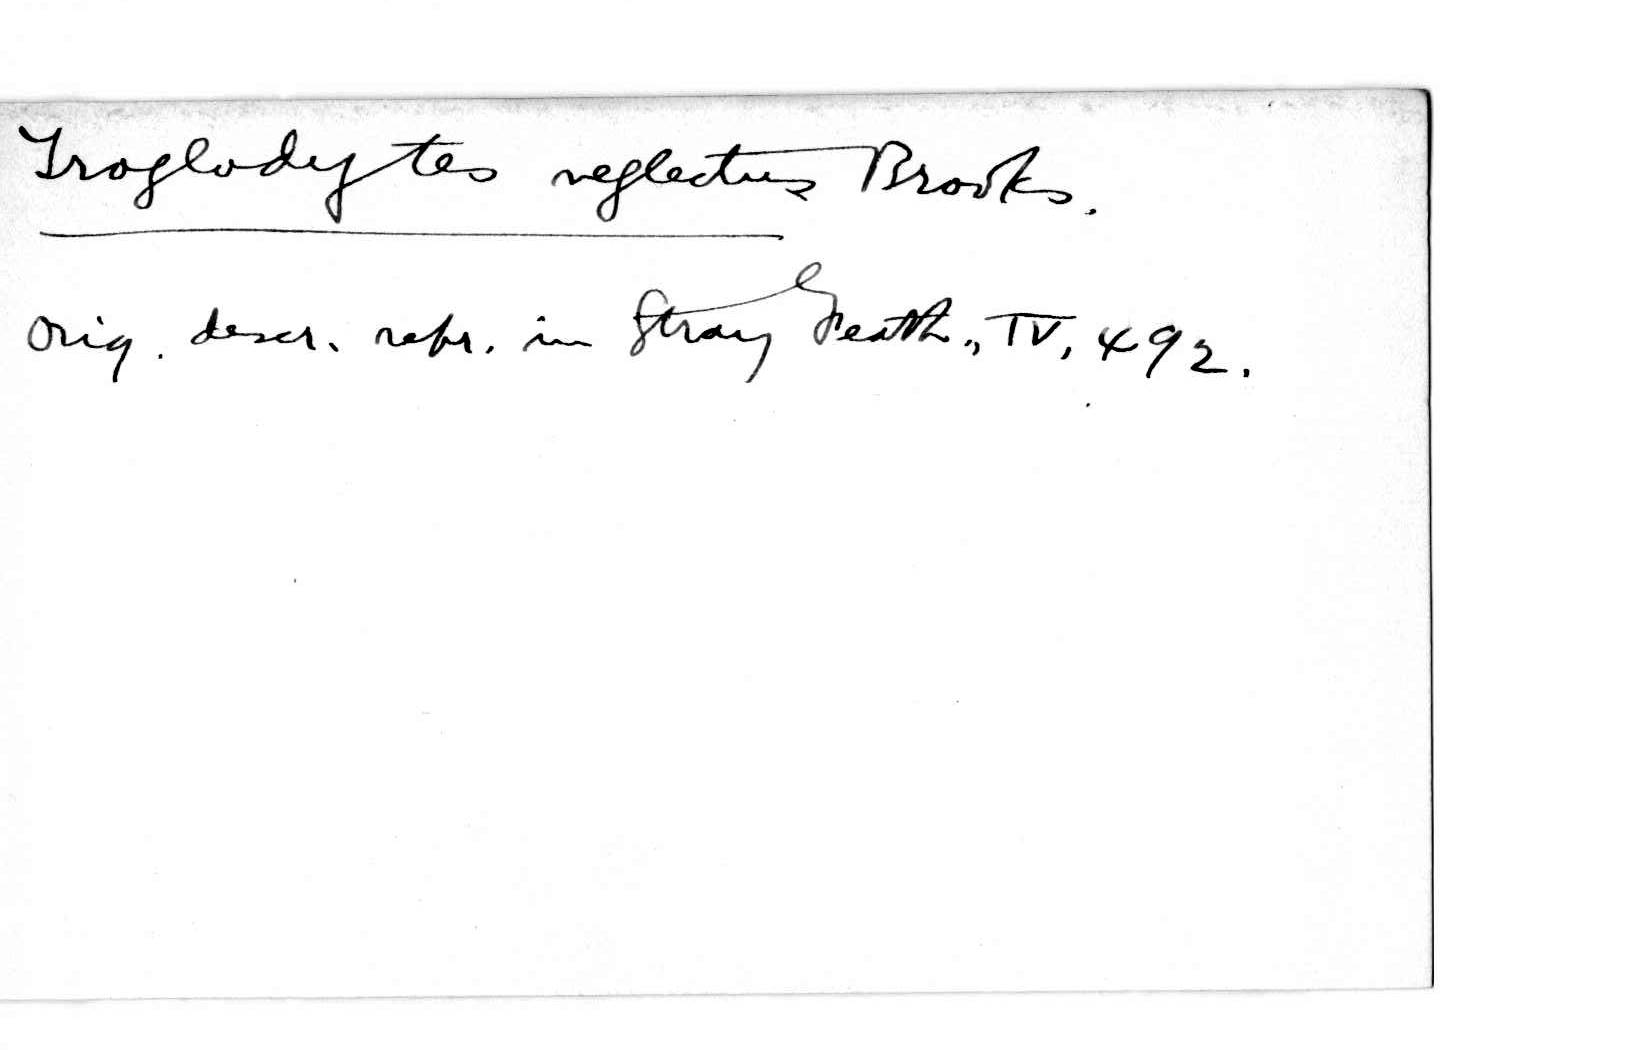 Troglodytes neglectus Brooks.
Orig. descr. repr. in Stray Feath., IV, 492.